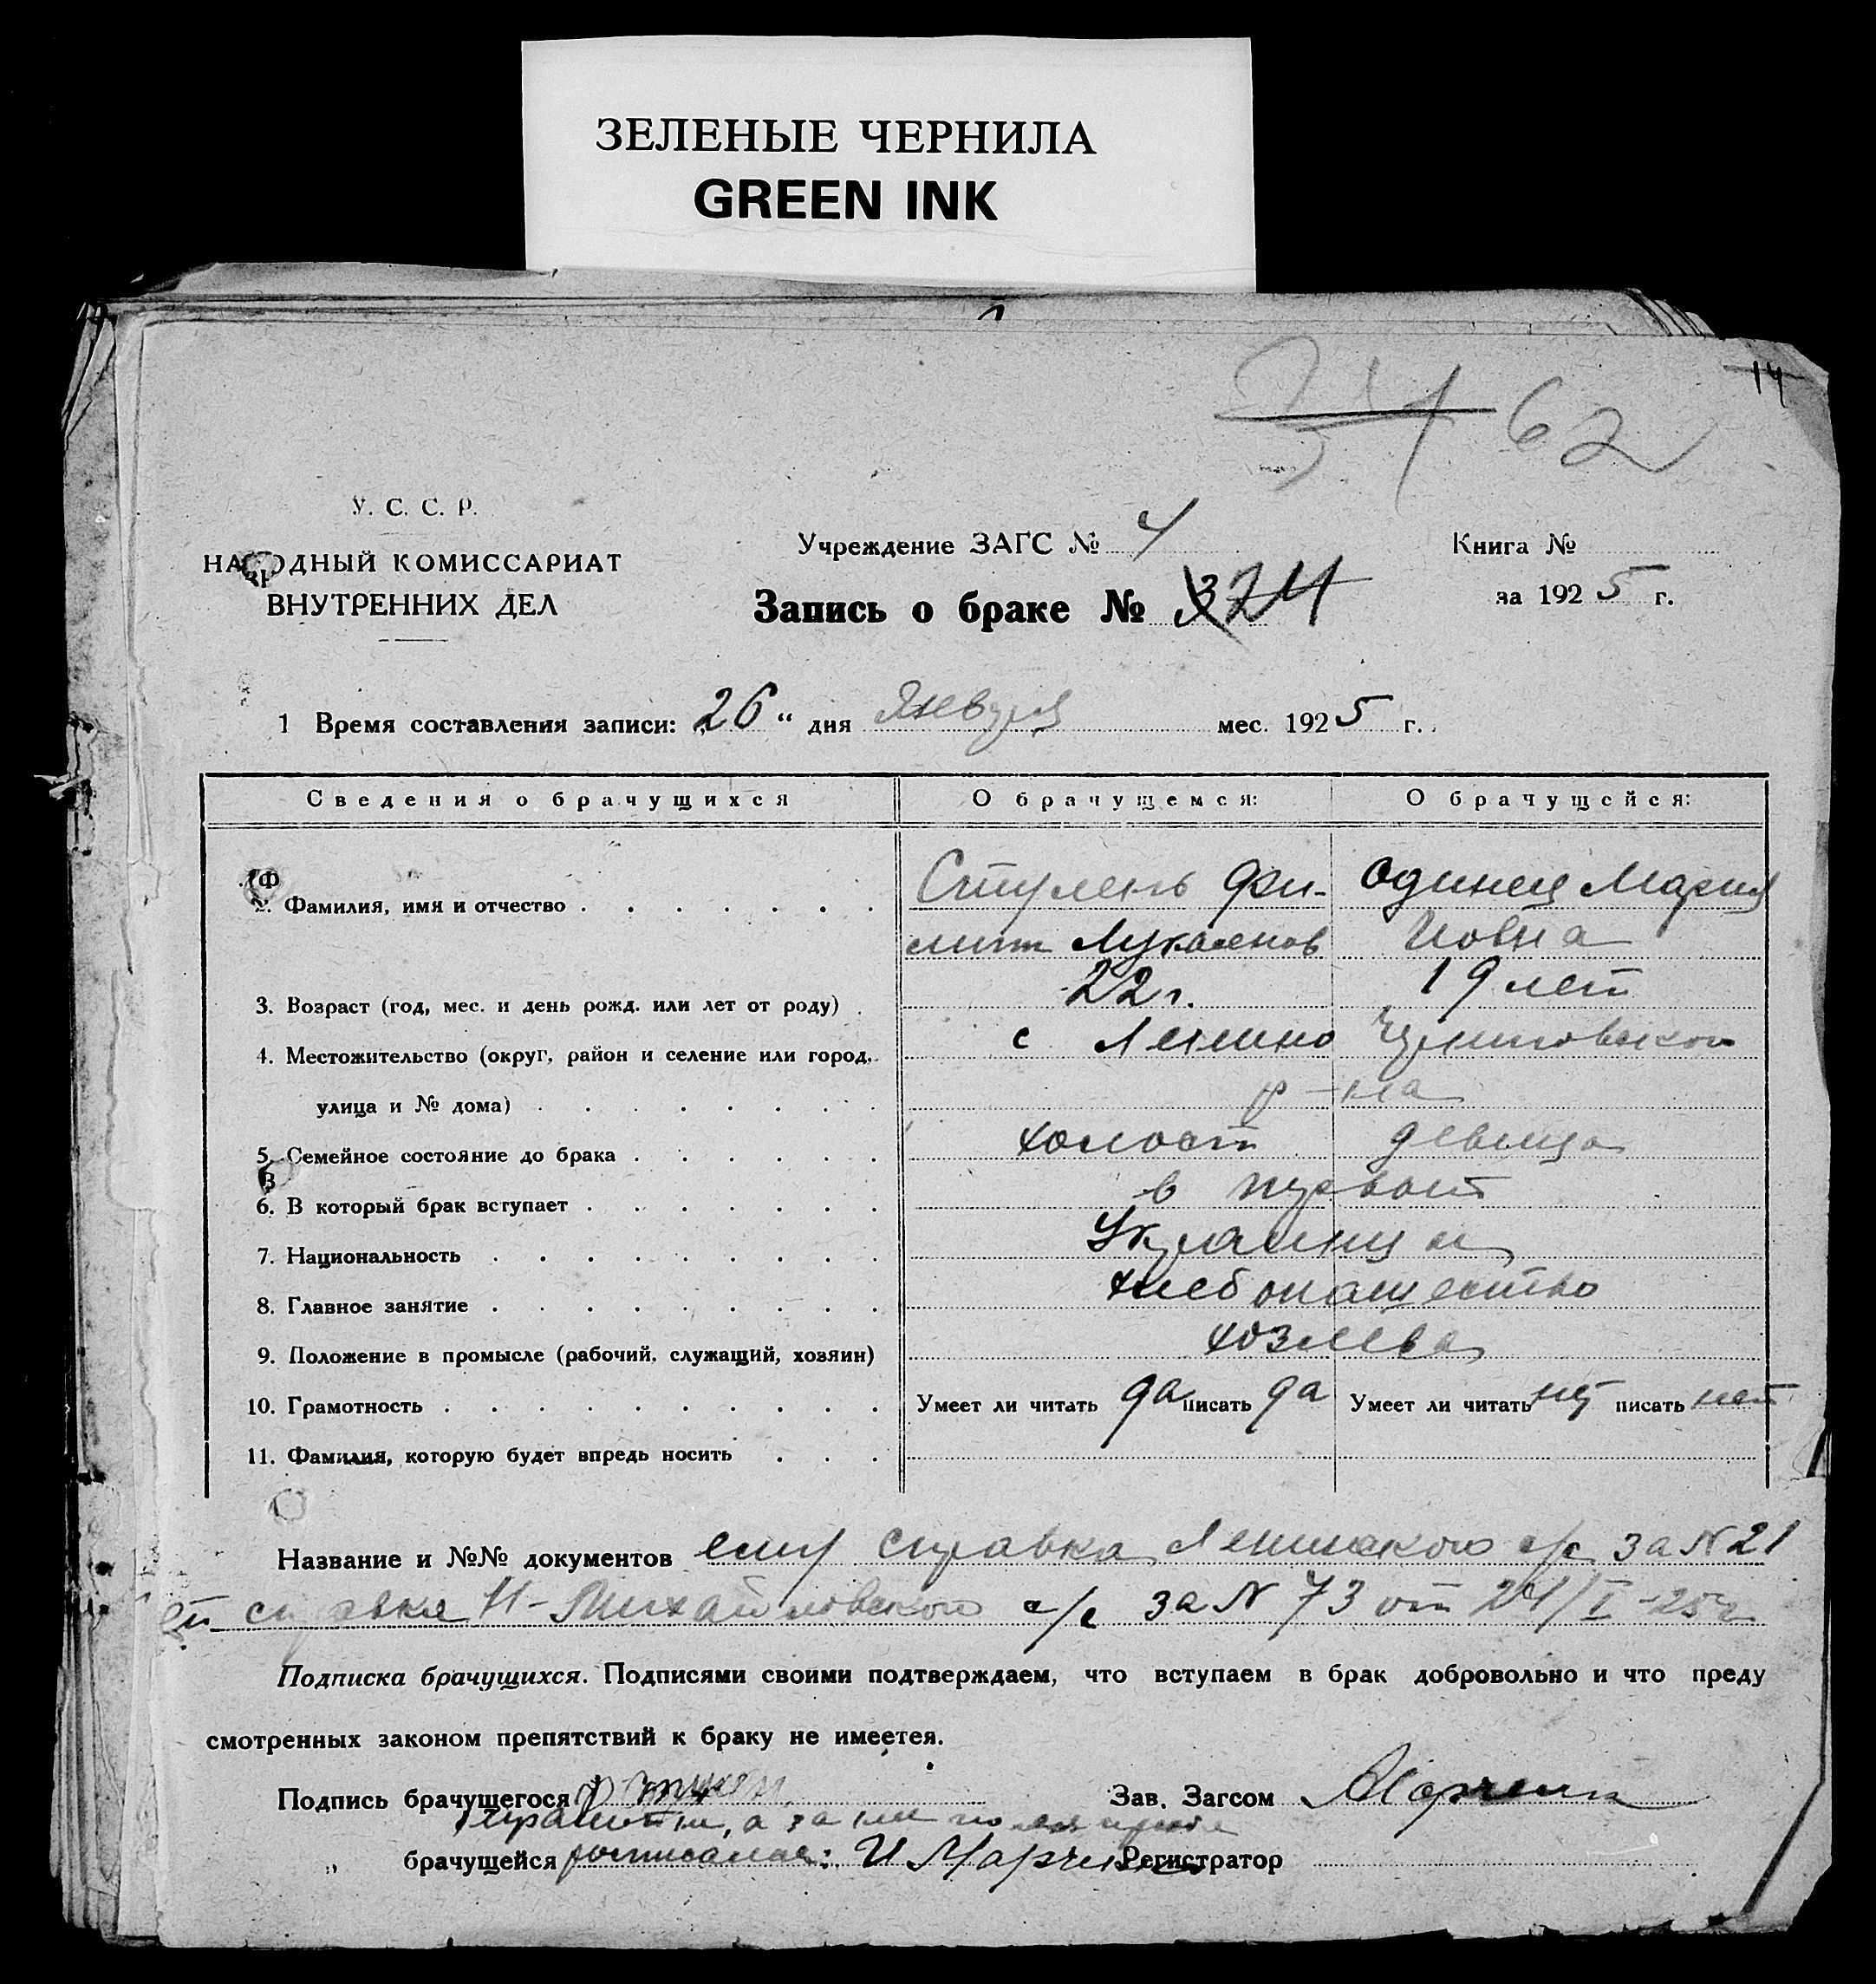 ЗЕЛЕНЫЕ ЧЕРНИЛА
GREEN INK
14
62
У. С. С. Р.
НАРОДНЫЙ КОМИССАРИАТ
ВНУТРЕННИХ ДЕЛ
Учреждение ЗАГС № 4
Книга №
Запись о браке № 24
за 1925 г.
1 Время составления записи: „26“ дня Января мес. 1925 г.
Сведения о брачущихся О брачущемся: О брачущейся:
2. Фамилия, имя и отчество Ступень Фи- Одинец Мария
лип Лукьянов Иовна
22 г. 19 лет
3. Возраст (год, мес. и день рожд. или лет от роду)
4. Местожительство (округ, район и селение или город, с Ленино
улица и № дома) р-на
5. Семейное состояние до брака холост девица
6. В который брак вступает в первый
7. Национальность Украинцы
8. Главное занятие хлебопашество
9. Положение в промысле (рабочий, служащий, хозяин) хозяева
10. Грамотность Умеет ли читать да писать да Умеет ли читать нет писать нет
11. Фамилия, которую будет впредь носить
Название и №№ документов ему справка Ленинского с/с за N 21
ей справка Н-Михайловского с/с за N 73 от 24/I-25 г
Подписка брачущихся. Подписями своими подтверждаем, что вступаем в брак добровольно и что преду
смотренных законом препятствий к браку не имеется.
Подпись брачущегося Зав. Загсом Марченко
а за
„ брачущейся росписался: И Марченко Регистратор